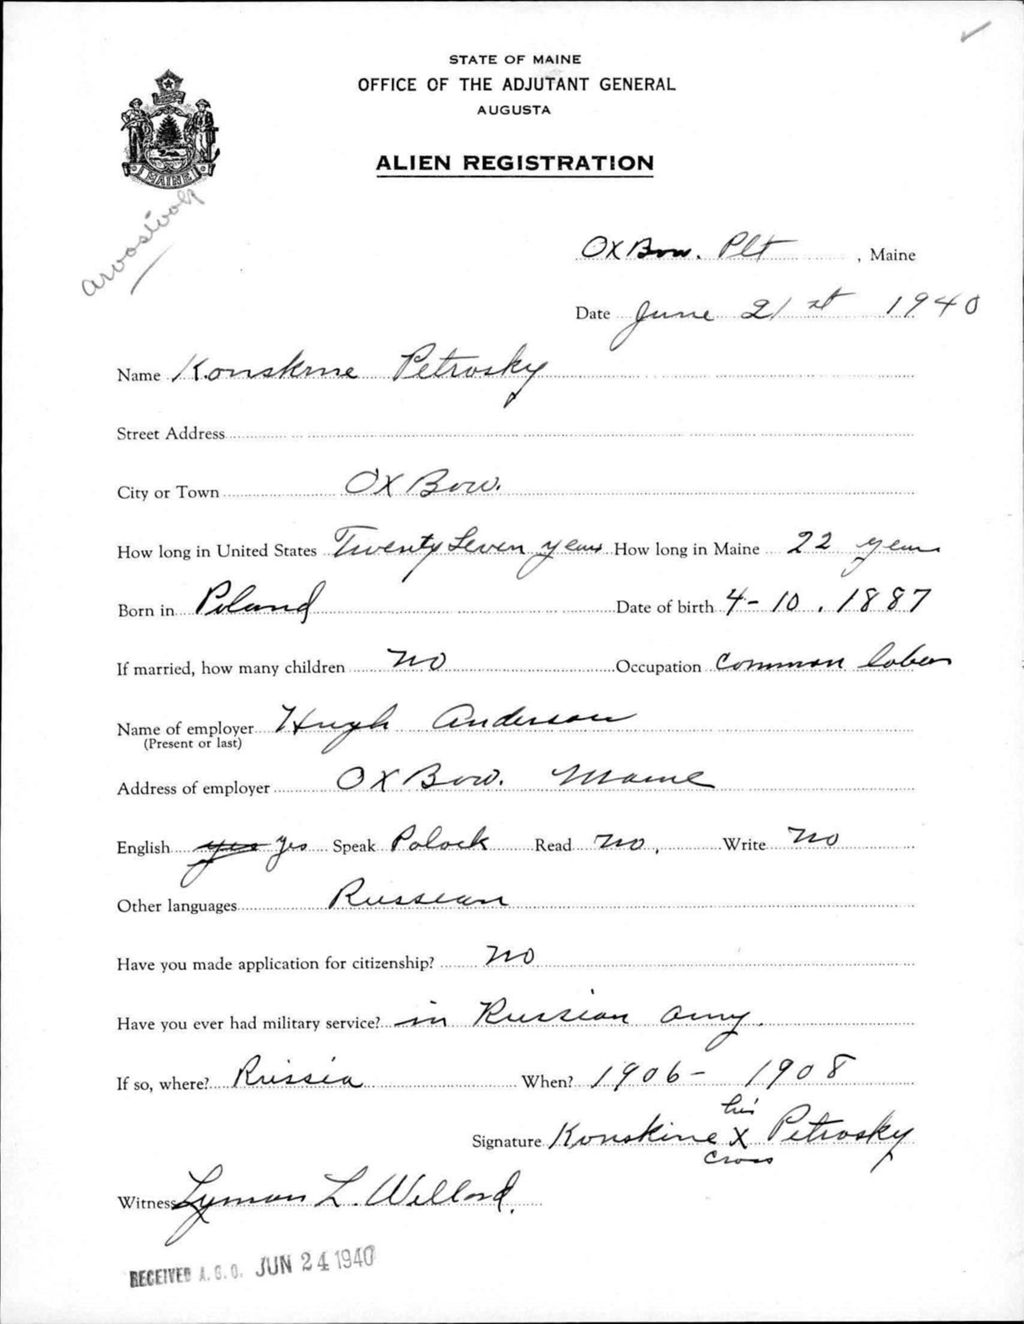 STATE OF MAINE
OFFICE OF THE ADJUTANT GENERAL
AUGUSTA
ALIEN REGISTRATION
MAINE
aroostook
OxBow. Plt , Maine
Date June 21st 1940
Name Konskine Petrosky
Street Address
City or Town Ox Bow.
How long in United States Twenty Seven years How long in Maine 22 years
Born in Poland Date of birth 4-10.1887
If married, how many children No Occupation Common labor
Name of employer Hugh Anderson
(Present or last)
Address of employer Ox Bow. Maine
English yes yes Speak Polock Read No, Write No
Other languages Russian
Have you made application for citizenship? No
Have you ever had military service? in Russian army.
If so, where? Russia When? 1906- 1908
his
Signature Konskine X Petrosky
Cross
Witness Lyman L. Willard.
RECEIVED A.G.O. JUN 24 1940